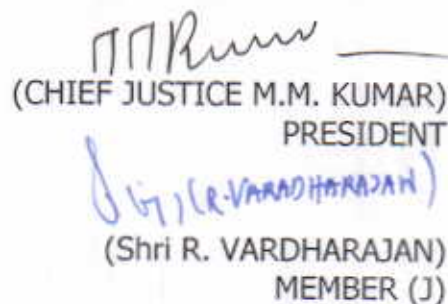 (CHIEF JUSTICE M.M. KUMAR)
PRESIDENT
(R.VARADHARAJAN)
(Shri R. VARDHARAJAN)
MEMBER (J)